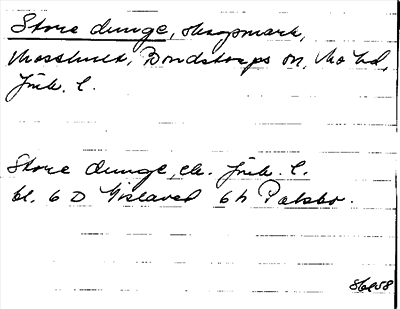 Store dunge, skogsmark,
Mosshult, Bondstorps sn, Mo hd,
Jönk. l.
Store dunge, ek. Jönk. l.
bl. 6 D Gislaved 6h Palsbo.